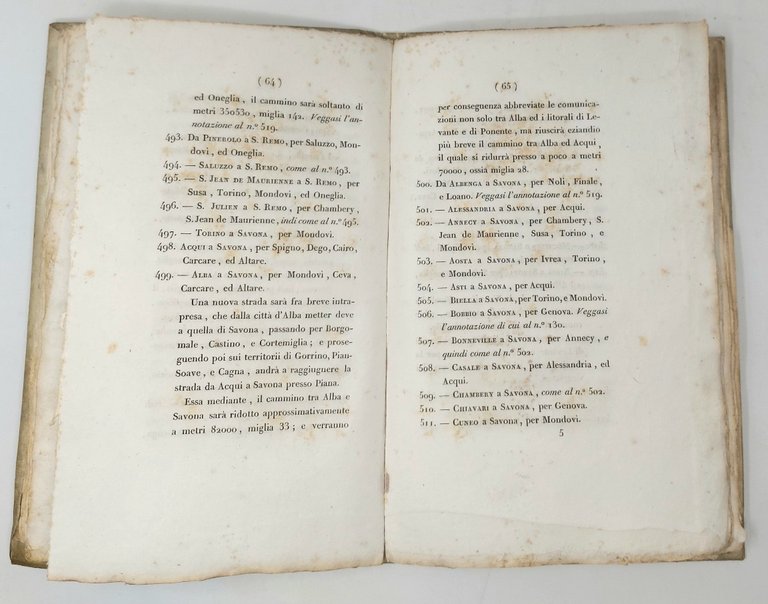 ( 64 )
ed Oneglia , il cammino sarà soltanto di
metri 350530 , miglia 142. Veggasi l'an-
notazione al n.º 519.
493. Da Pinerolo a S. Remo, per Saluzzo, Mon-
dovì , ed Oneglia.
494. — Saluzzo a S. Remo , come al n.º 493.
495. — S. Jean de Maurienne a S. Remo , per
Susa , Torino , Mondovì , ed Oneglia.
496. — S. Julien a S. Remo , per Chambery ,
S. Jean de Maurienne, indi come al n.º 495.
497. — Torino a Savona , per Mondovì.
498. Acqui a Savona, per Spigno, Dego, Cairo,
Carcare , ed Altare.
499. — Alba a Savona , per Mondovì , Ceva,
Carcare , ed Altare.
Una nuova strada sarà fra breve intra-
presa , che dalla città d'Alba metter deve
a quella di Savona , passando per Borgo-
male , Castino , e Cortemiglia ; e prose-
guendo poi sui territorii di Gorrino, Pian-
Soave , e Cagna , andrà a raggiugnere la
strada da Acqui a Savona presso Piana.
Essa mediante , il cammino tra Alba e
Savona sarà ridotto approssimativamente
a metri 82000, miglia 33 ; e verranno
( 65 )
per conseguenza abbreviate le comunica-
zioni non solo tra Alba ed i litorali di Le-
vante e di Ponente , ma riuscirà eziandio
più breve il cammino tra Alba ed Acqui ,
il quale si ridurrà presso a poco a metri
70000, ossia miglia 28.
500. Da Albenga a Savona , per Noli, Finale ,
e Loano. Veggasi l'annotazione al n.º 519.
501. — Alessandria a Savona , per Acqui.
502. — Annecy a Savona , per Chambery , S.
Jean de Maurienne , Susa , Torino , e
Mondovì.
503. — Aosta a Savona , per Ivrea , Torino ,
e Mondovì.
504. — Asti a Savona , per Acqui.
505. — Biella a Savona, per Torino, e Mondovì.
506. — Bobbio a Savona , per Genova. Veggasi
l'annotazione di cui al n.º 130.
507. — Bonneville a Savona , per Annecy , e
quindi come al n.º 502.
508. — Casale a Savona , per Alessandria , ed
Acqui.
509. — Chambery a Savona , come al n.º 502.
510. — Chiavari a Savona , per Genova.
511. — Cuneo a Savona , per Mondovì.
5